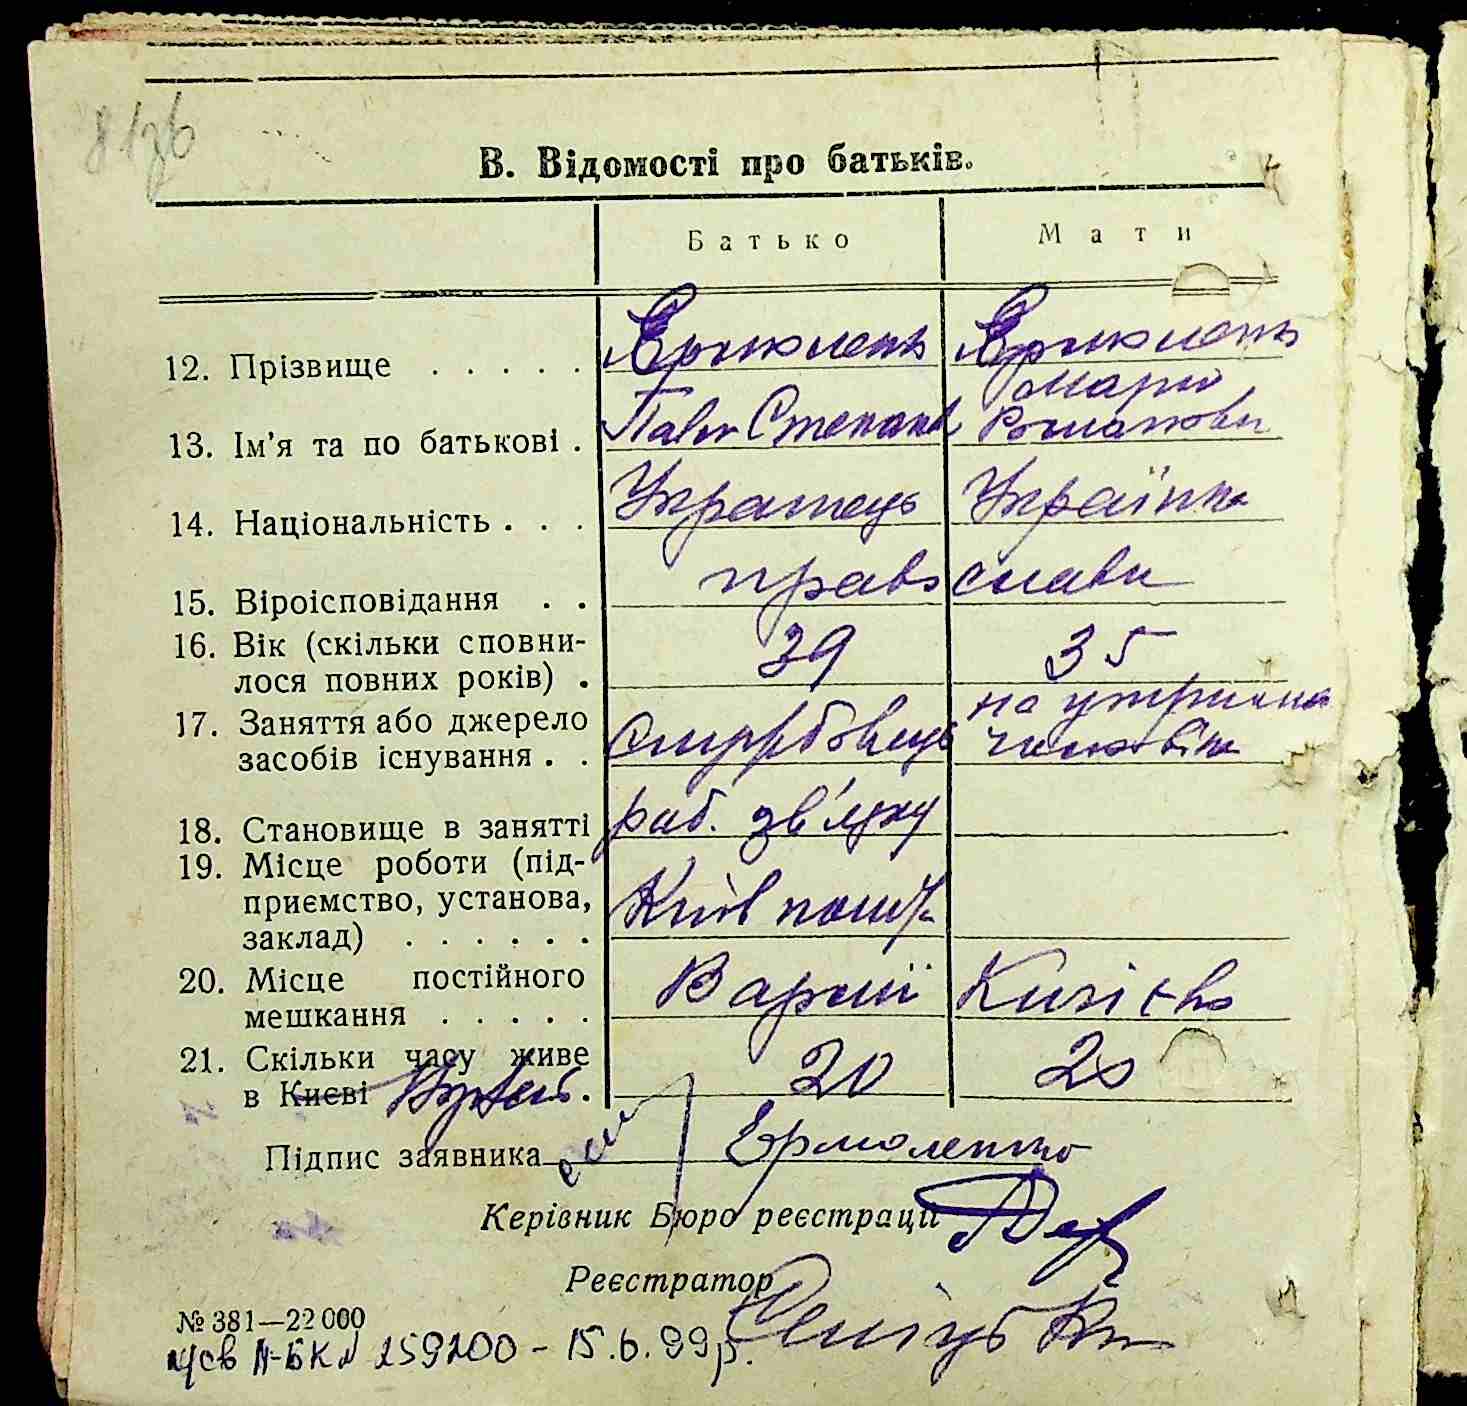 В. Відомості про батьків.
Батько Мати
12. Прізвище . . . . .
Марія
13. Ім'я та по батькові . Павло Степанов Романовн
14. Національність . . . Українець Українка
15. Віроісповідання . . православн
16. Вік (скільки сповни-
лося повних років) . 39 35
17. Заняття або джерело на утриман
засобів існування . . службовець чоловіка
18. Становище в занятті роб. зв'язку
19. Місце роботи (під-
приємство, установа,
заклад) . . . . . . Київ пошт.
20. Місце постійного
мешкання . . . . .
21. Скільки часу живе
в Києві . 20 20
Підпис заявника Ермоленко
Керівник Бюро реєстрації
Реєстратор
№ 381—22 000
259200 - 15.6.99р.